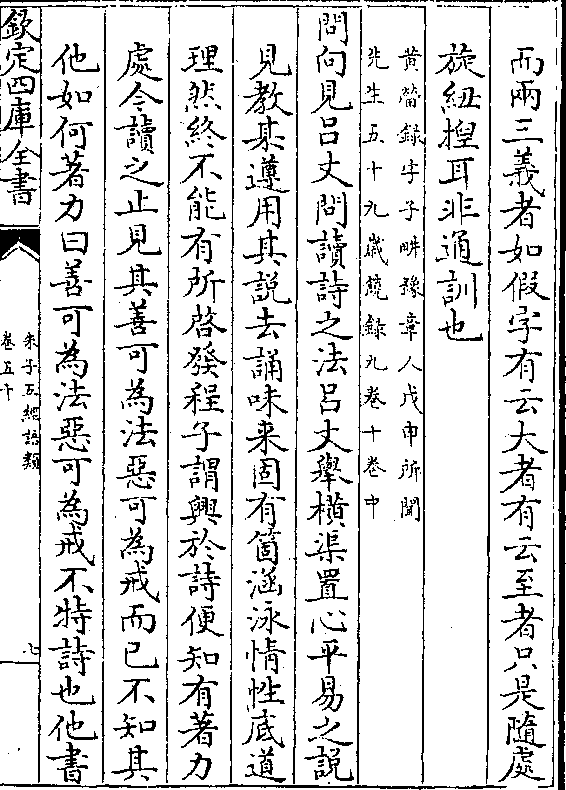 而兩三義者如假字有云大者有云至者只是隨處
旋紐揑耳非通訓也
黃㽦錄字子畊豫章人戊申所聞
先生五十九歳饒錄九卷十卷中
問向見吕丈問讀詩之法吕丈舉横渠置心平易之說
見教某遵用其説去誦味来固有箇涵泳情性底道
理然終不能有所啓發程子謂興於詩便知有著力
處今讀之止見其善可為法惡可為戒而已不知其
他如何著力曰善可為法惡可為戒不特詩也他書
欽定四庫全書
朱子五經語類
卷五十
七